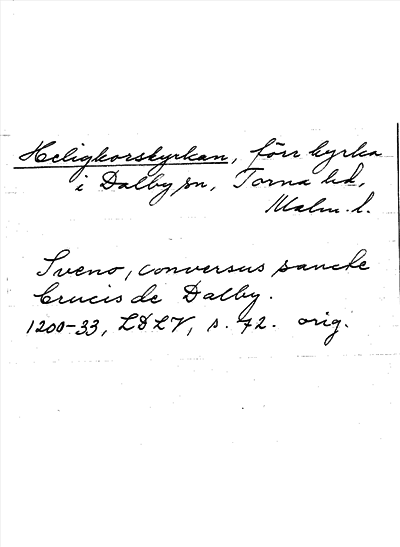 Heligkorskyrkan, förr kyrka
i Dalby sn, Torna hd,
Malm. l.
Sveno, conversus sancte
Crucis de Dalby.
1200-33, LDLV, s. 72. orig.